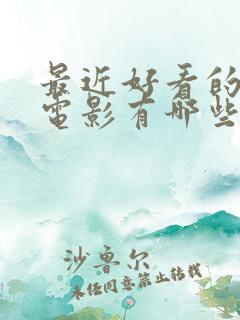 最近好看的
電影有哪些
沙鲁尔
未经同意禁止转载